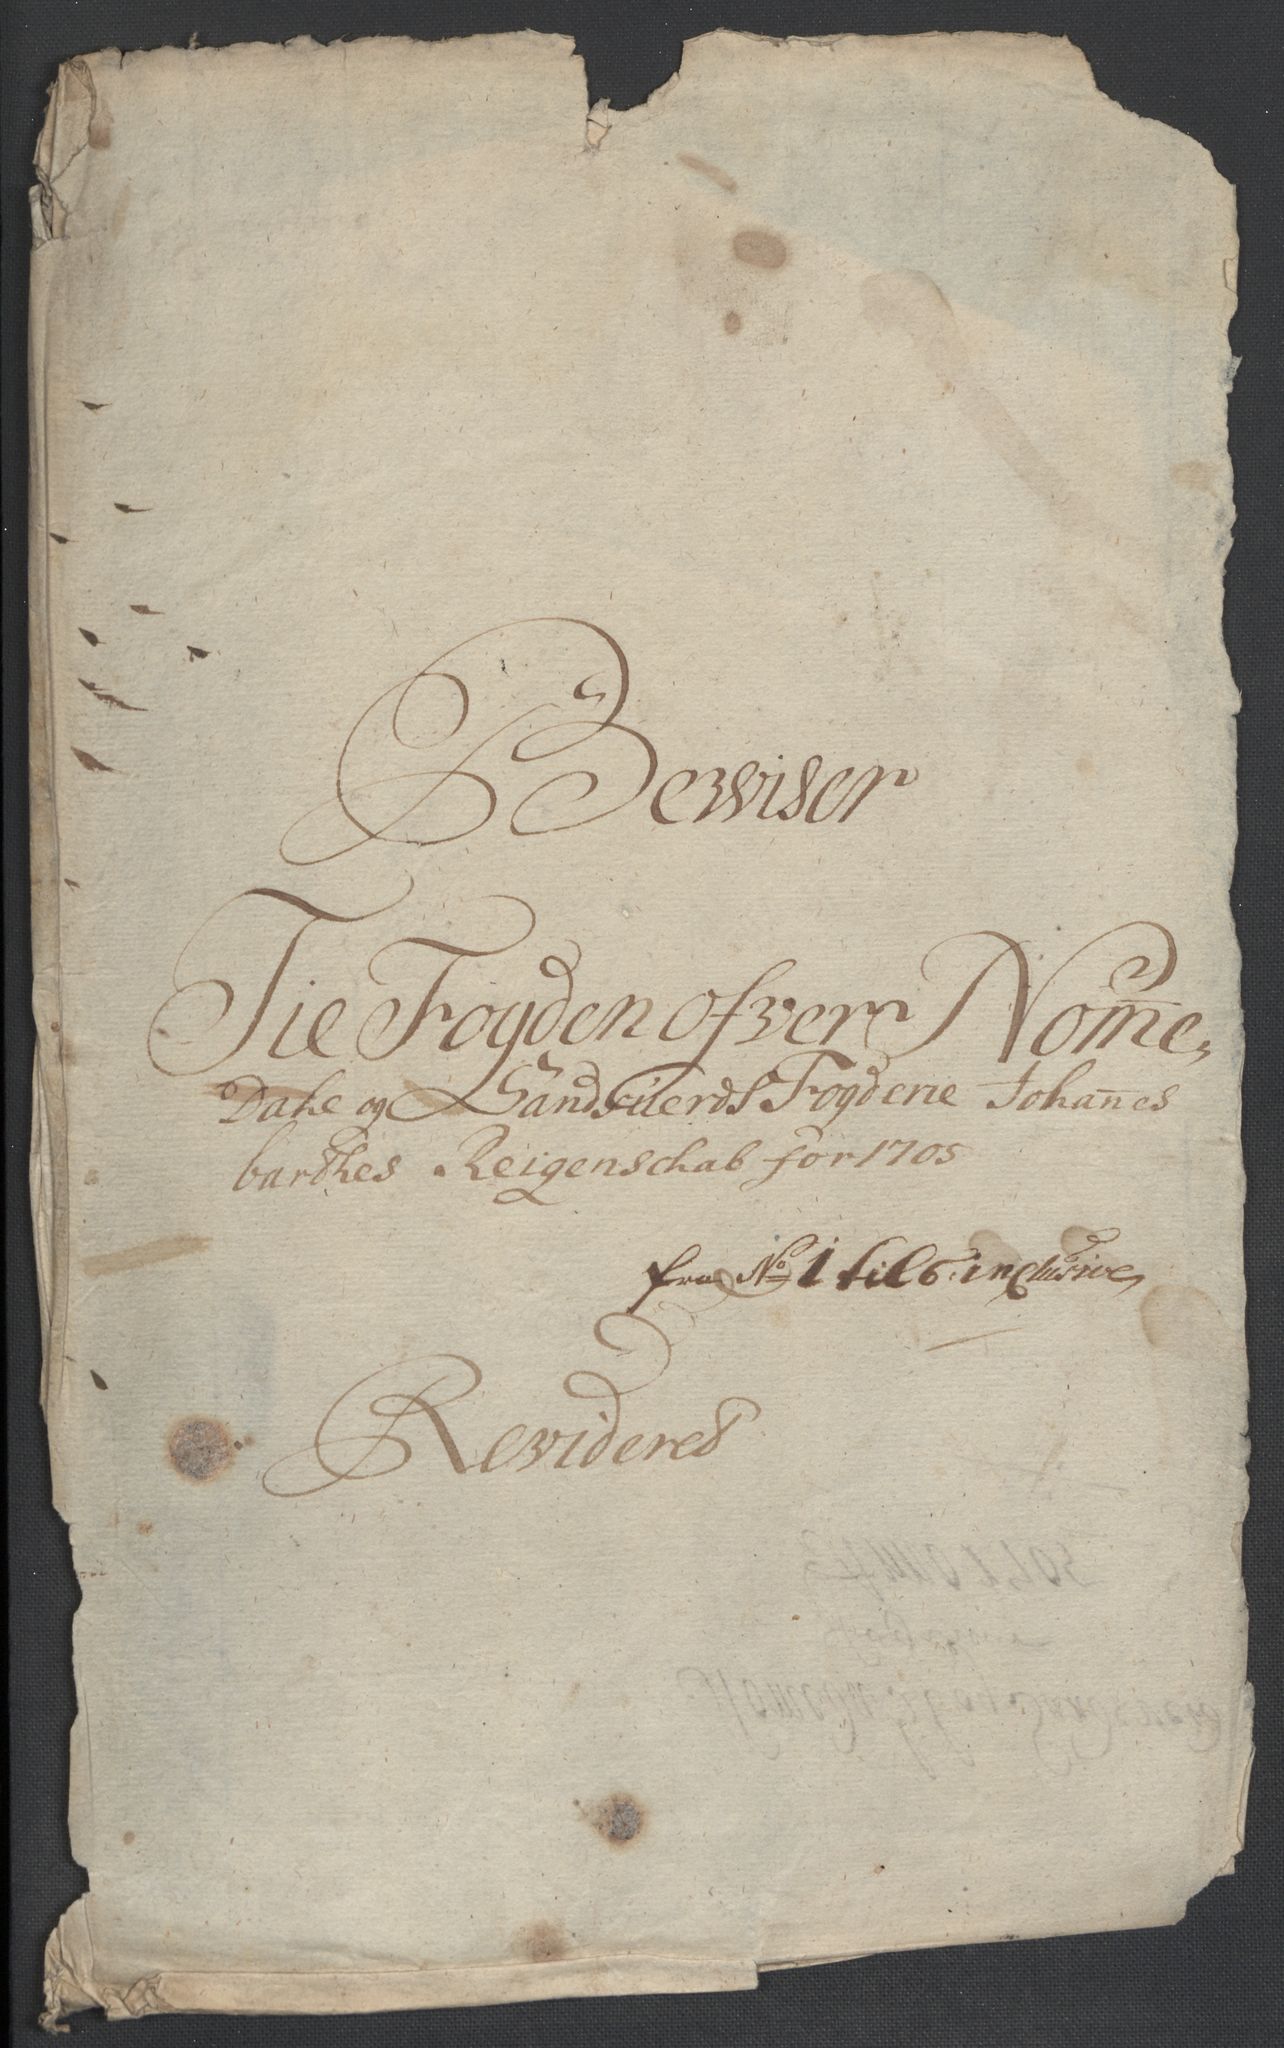 Bewiser
Til Fogden ofver Nom̄e,
Dahls og Sandsuerds Fogderie Johan̄es
barthes Reigenschab for 1705
fra No 1 til 6. inclusive,
Revideret
Anno 1705